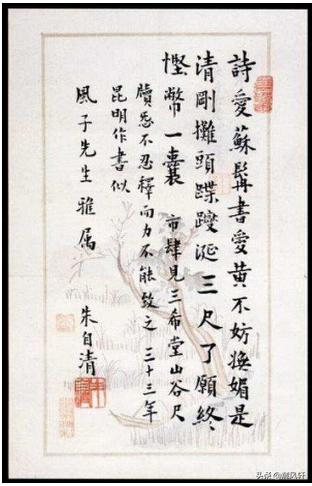 詩愛蘇髯書愛黃不妨娬媚是
清剛攤頭蹀躞涎三尺了願終
慳幣一囊 市肆見三希堂山谷尺
牘愛不忍釋而力不能致之 三十三年
昆明作書似
風子先生雅属 朱自清
头条